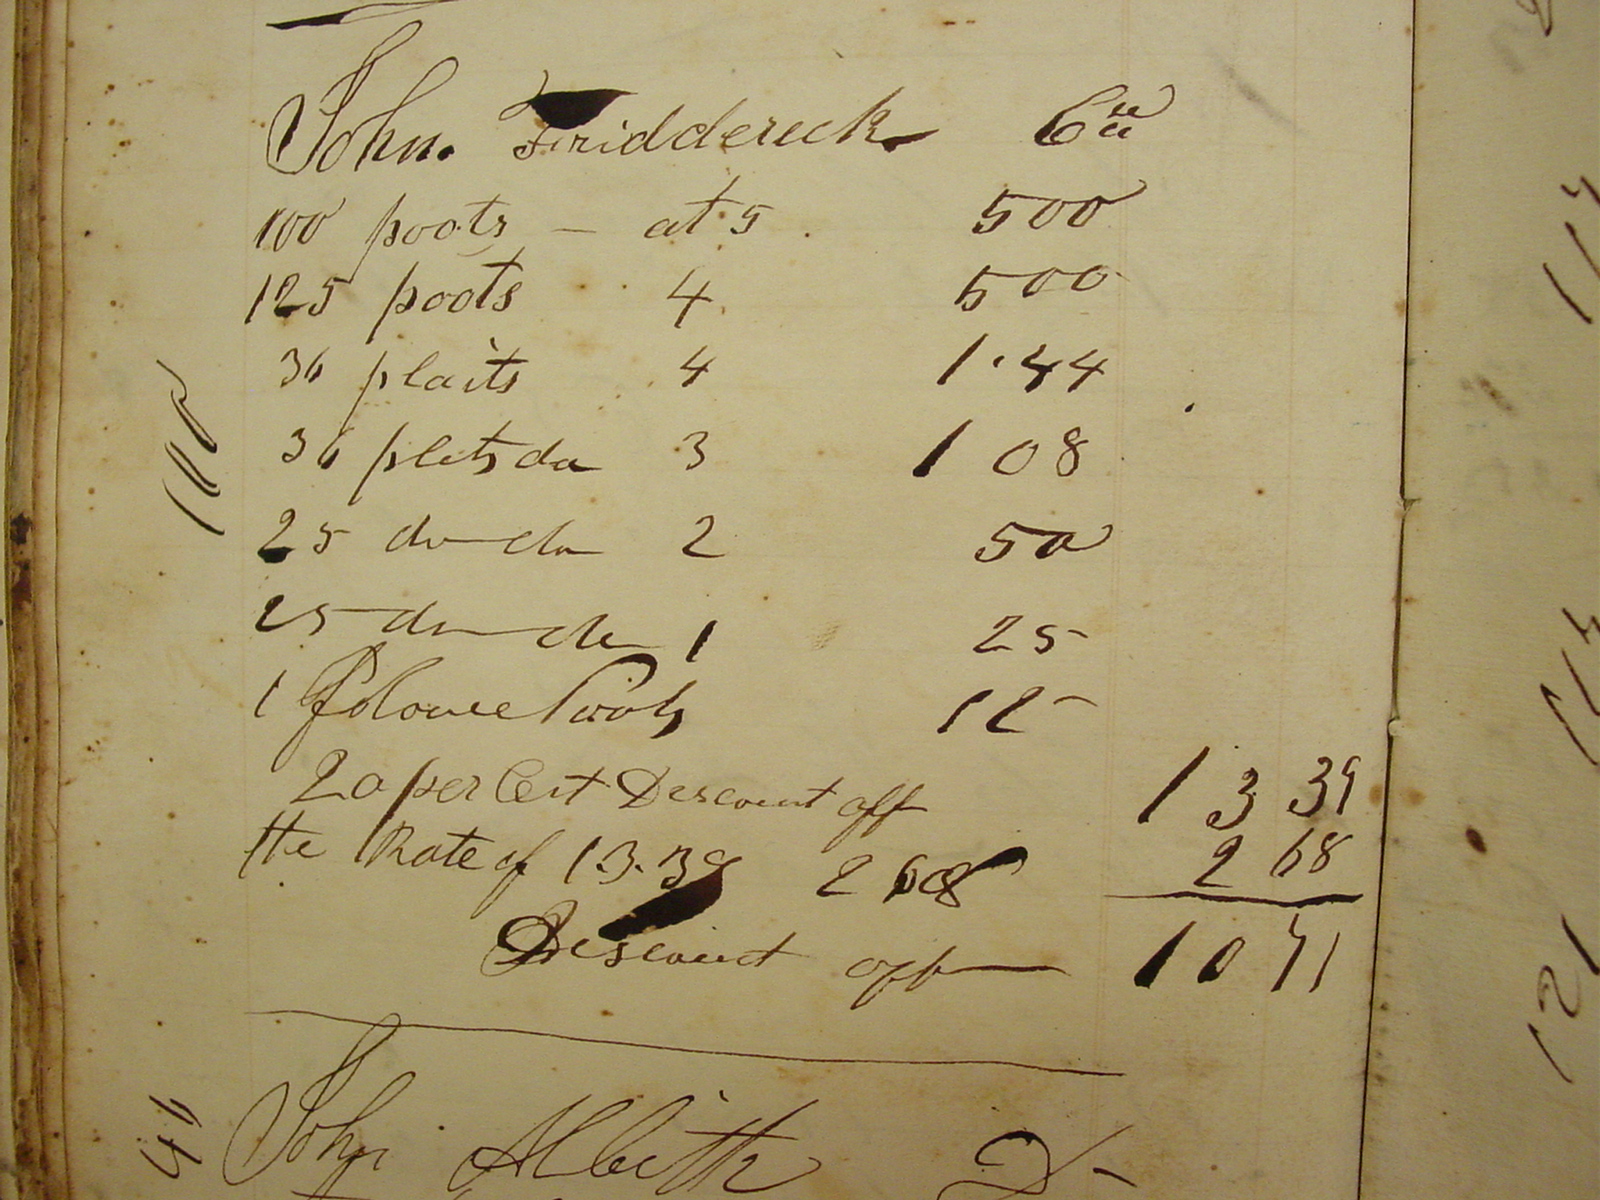 John. Friddereck Cu
100 poots — at 5 500
125 poots 4 500
36 plaits 4 1.44
36 plets do 3 1 08
100
25 do do 2 50
25 do do 1 25
1 12
20 per Cent Descount off 13 39
the Rate of 13.39 2 68 2 68
Descount off 10 71
46 John Albeith D